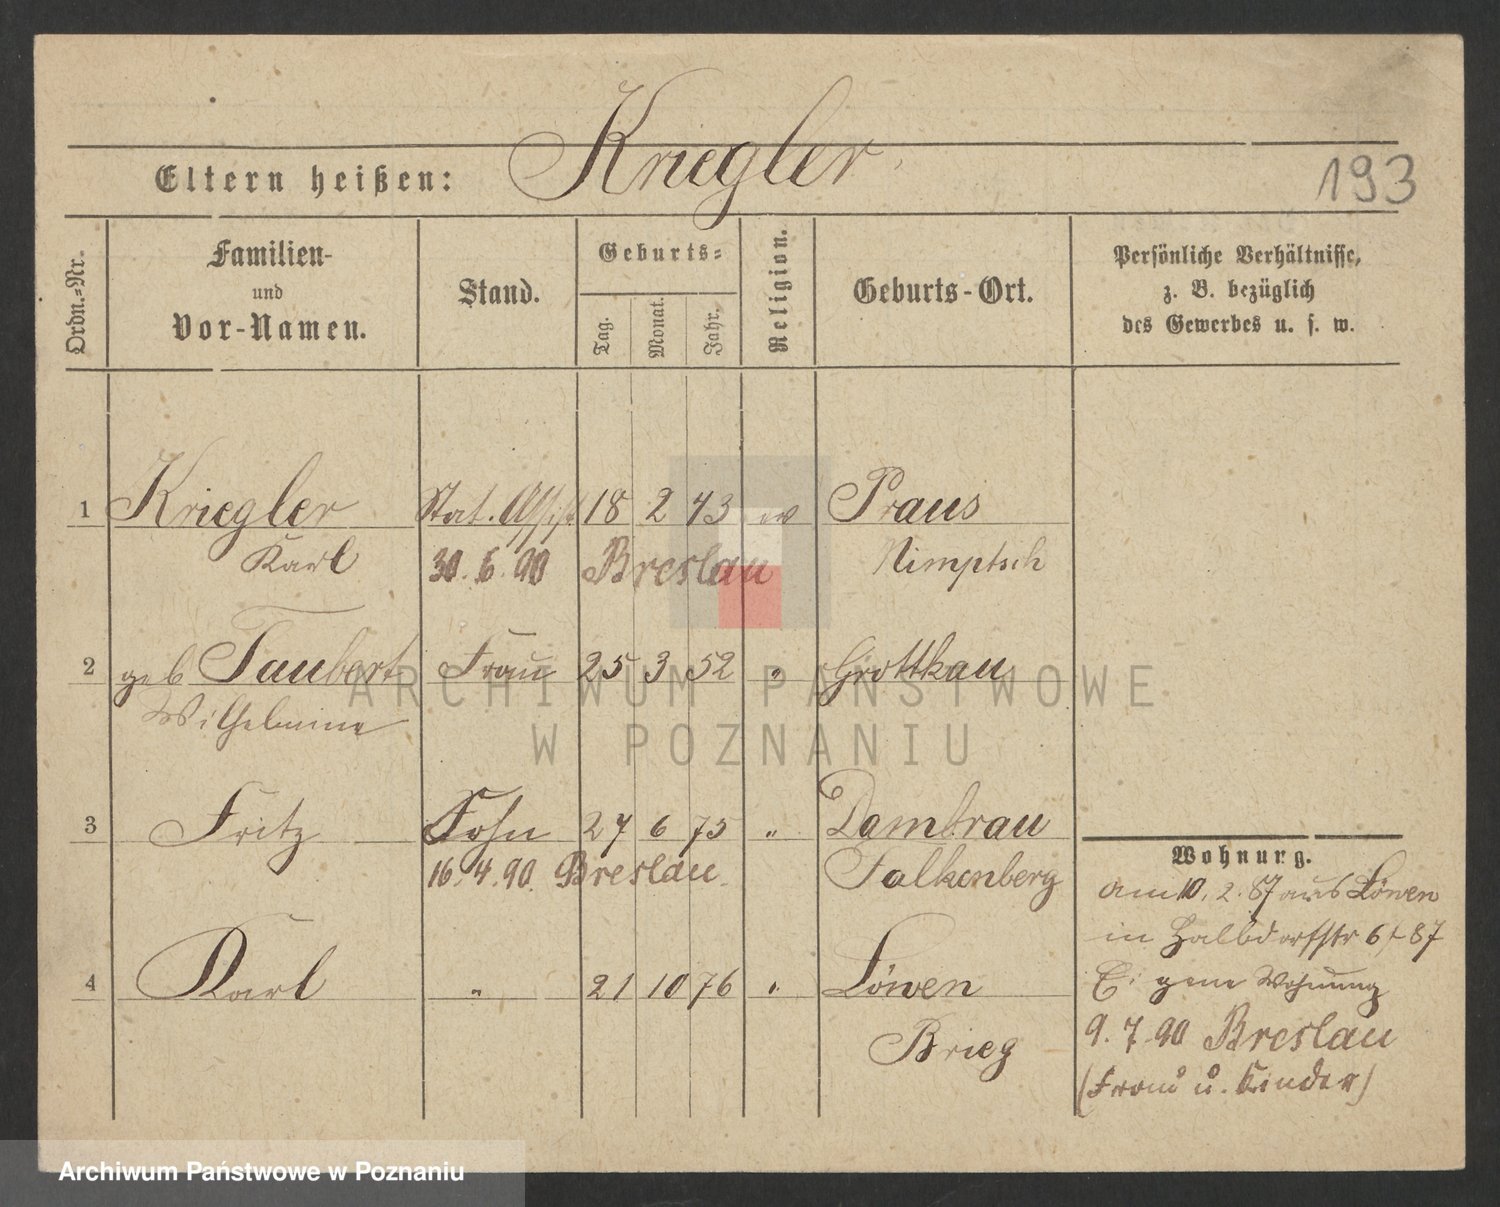 Kriegler
Eltern heißen:
193
Ordn.-Nr.
Familien-
und
Vor-Namen.
Stand.
Geburts-
Tag.
Monat.
Jahr.
Religion.
Geburts-Ort.
Persönliche Verhältnisse,
z. B. bezüglich
des Gewerbes u. s. w.
1 Kriegler Stat. Assist 18 2 43 ev Praus
Karl 30. 6. 90 Breslau Nimptsch
2 geb Taubert Frau 25 3 52 " Grottkau
Wilhelmine
3 Fritz Sohn 27 6 75 " Dambrau
16. 4. 90. Breslau. Falkenberg
4 Karl " 21 10 76 " Löwen
Brieg
Wohnung.
am 10. 2. 87 aus Löwen
in Halbdorfstr 6 87
Eigene Wohnung
9. 7. 90 Breslau
(Frau u. Kinder)
ARCHIWUM PAŃSTWOWE
W POZNANIU
Archiwum Państwowe w Poznaniu